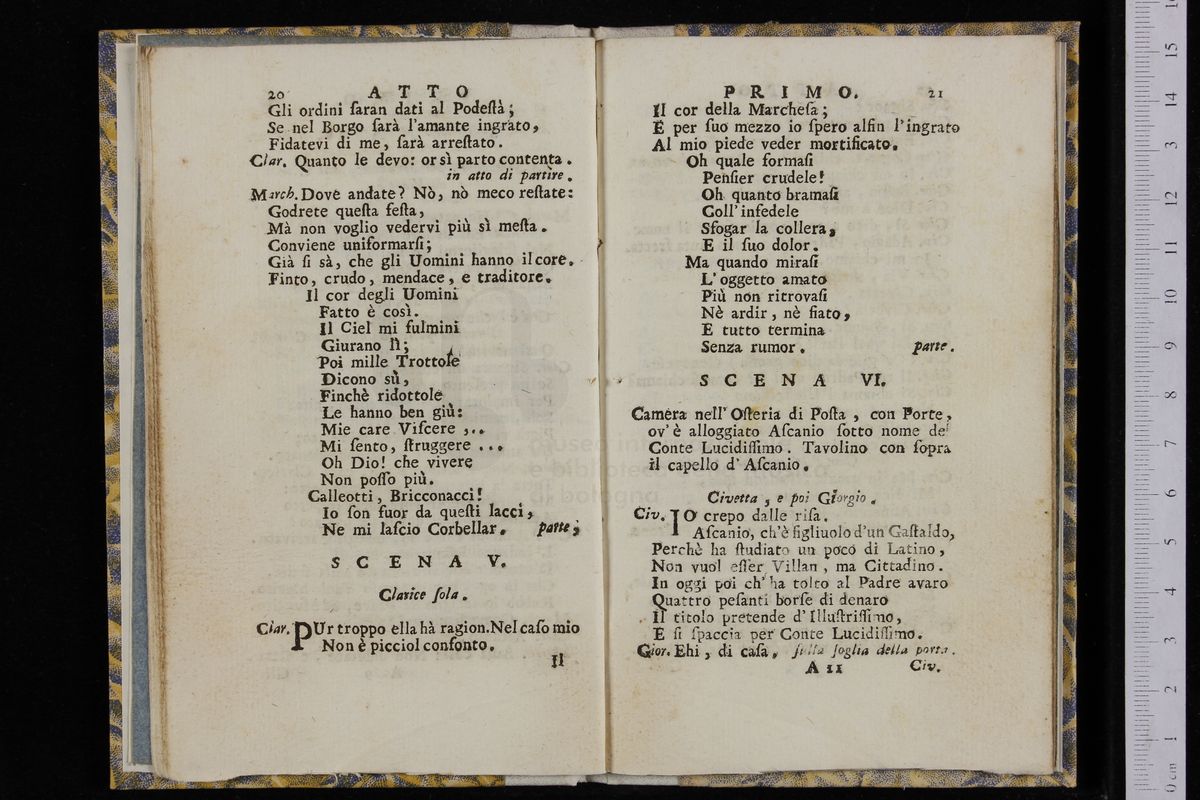 20 ATTO
Gli ordini ſaran dati al Podeſtà;
Se nel Borgo ſarà l'amante ingrato,
Fidatevi di me, ſarà arreſtato.
Clar. Quanto le devo: or sì parto contenta.
in atto di partire.
March. Dove andate? Nò, nò meco reſtate:
Godrete queſta feſta,
Mà non voglio vedervi più sì meſta.
Conviene uniformarſi;
Già ſi sà, che gli Uomini hanno il core.
Finto, crudo, mendace, e traditore.
Il cor degli Uomini
Fatto è così.
Il Ciel mi fulmini
Giurano lì;
Poi mille Trottole
Dicono sù,
Finchè ridottole
Le hanno ben giù:
Mie care Viſcere ,..
Mi ſento, ſtruggere ...
Oh Dio! che vivere
Non poſſo più.
Calleotti, Bricconacci!
Io ſon fuor da queſti lacci,
Ne mi laſcio Corbellar. parte;
SCENA V.
Clarice ſola.
Clar. PUr troppo ella hà ragion. Nel caſo mio
Non è picciol conſonto.
Il
PRIMO. 21
Il cor della Marcheſa;
E per ſuo mezzo io ſpero alfin l'ingrato
Al mio piede veder mortificato.
Oh quale formaſi
Penſier crudele!
Oh quanto bramaſi
Coll' infedele
Sfogar la collera,
E il ſuo dolor.
Ma quando miraſi
L' oggetto amato
Più non ritrovaſi
Nè ardir, nè fiato,
E tutto termina
Senza rumor. parte.
SCENA VI.
Camera nell' Oſteria di Poſta, con Porte,
ov' è alloggiato Aſcanio ſotto nome del
Conte Lucidiſſimo. Tavolino con ſopra
il capello d' Aſcanio.
Civetta, e poi Giorgio.
Civ. IO crepo dalle riſa.
Aſcanio, ch'è figliuolo d'un Gaſtaldo,
Perchè ha ſtudiato un poco di Latino,
Non vuol eſſer Villan, ma Cittadino.
In oggi poi ch' ha tolto al Padre avaro
Quattro peſanti borſe di denaro
Il titolo pretende d' Illuſtriſſimo,
E ſi ſpaccia per Conte Lucidiſſimo.
Gior. Ehi, di caſa, ſulla ſoglia della porta.
A 11 Civ.